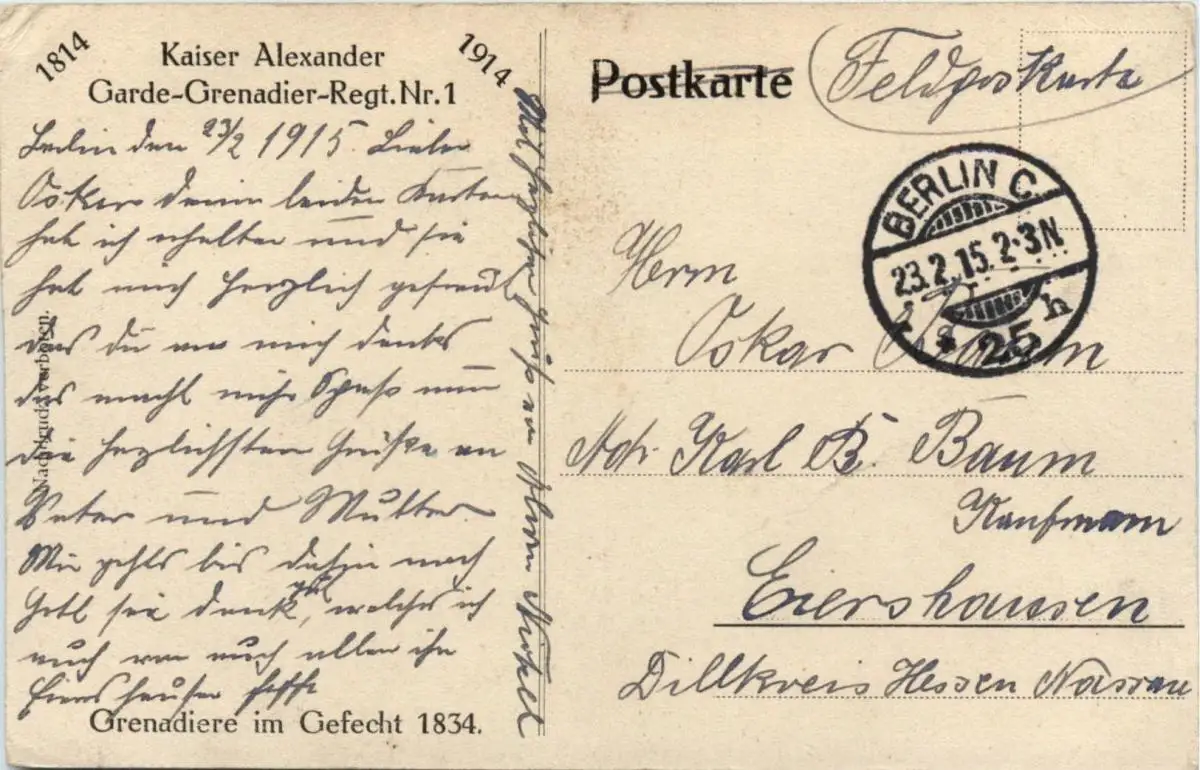 1814
Kaiser Alexander
Garde-Grenadier-Regt. Nr. 1
1914
Berlin den 23/2 1915. Lieber
Oskar deine beiden Karten
hab ich erhalten und sie
hat mich herzlich gefreut
das du an mich denkst
das macht mich Spaß nun
die herzlichsten Grüße an
Vater und Mutter
Mir gehts bis dahin noch
Gott sei dank gut, welches ich
auch von euch allen in
Eiershausen hoffe
Grenadiere im Gefecht 1834.
Nachdruck verboten.
herzlichen Gruß an
Postkarte
Feldpostkarte
BERLIN C.
23.2.15. 2-3N
* 25 h
Herrn
Oskar
Adr. Karl B. Baum
Kaufmann
Eiershausen
Dillkreis Hessen Nassau